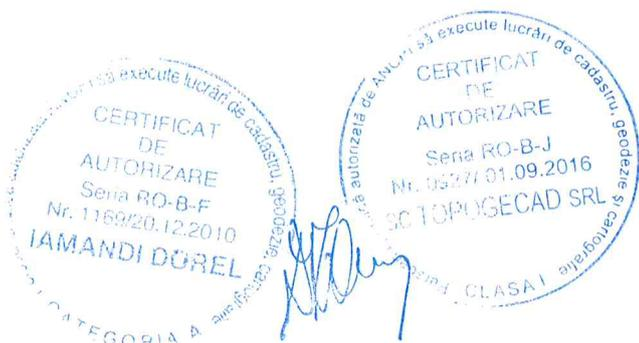 să execute lucrări de cadastru, geodezie, cartografie
CERTIFICAT
DE
AUTORIZARE
Seria RO-B-F
Nr. 1169/20.12.2010
IAMANDI DOREL
CATEGORIA A
autorizată de ANCPI să execute lucrări de cadastru, geodezie și cartografie
CERTIFICAT
DE
AUTORIZARE
Seria RO-B-J
Nr. 0927/01.09.2016
SC TOPOGECAD SRL
CLASA I